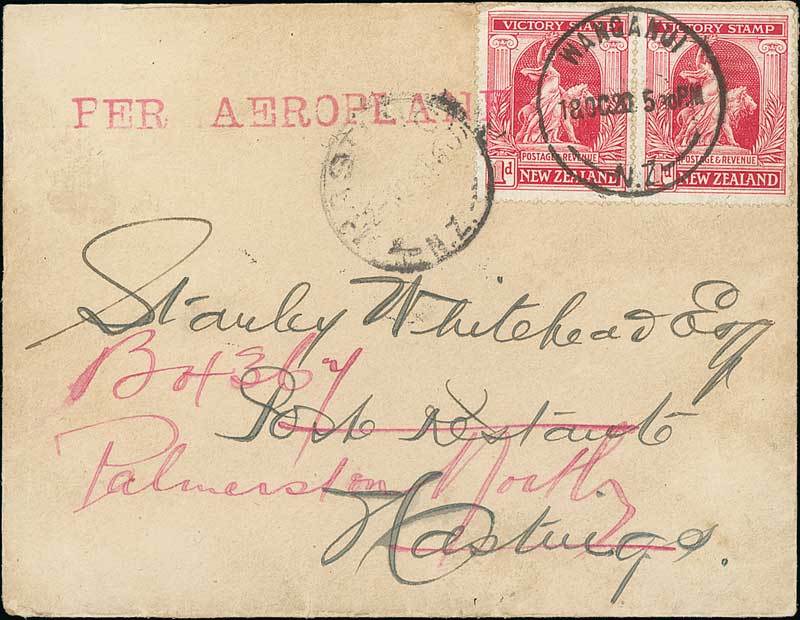 VICTORY STAMP
POSTAGE & REVENUE
1d NEW ZEALAND
VICTORY STAMP
POSTAGE & REVENUE
1d NEW ZEALAND
WANGANUI
18 OC 20 5 PM
N.Z.
PER AEROPLANE
N.Z.
Stanley Whitehead Esq
Box 367
Poste Restante
Palmerston North
Hastings.